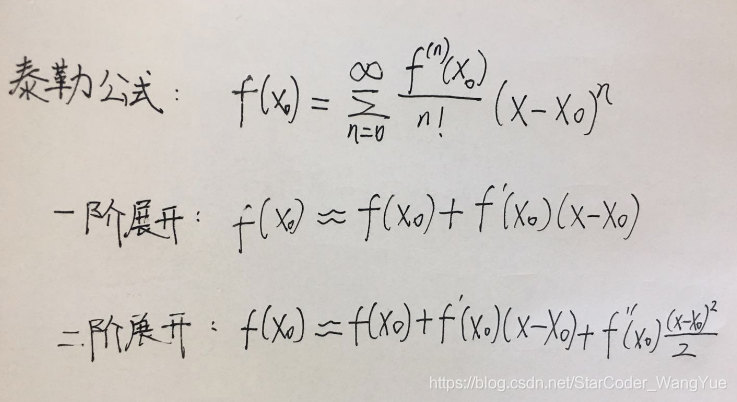 泰勒公式： f(x₀) = ∑_{n=0}^{∞} f⁽ⁿ⁾(x₀)/n! (x-x₀)ⁿ
一阶展开： f(x₀) ≈ f(x₀) + f'(x₀)(x-x₀)
二阶展开： f(x₀) ≈ f(x₀) + f'(x₀)(x-x₀) + f''(x₀) (x-x₀)²/2
https://blog.csdn.net/StarCoder_WangYue